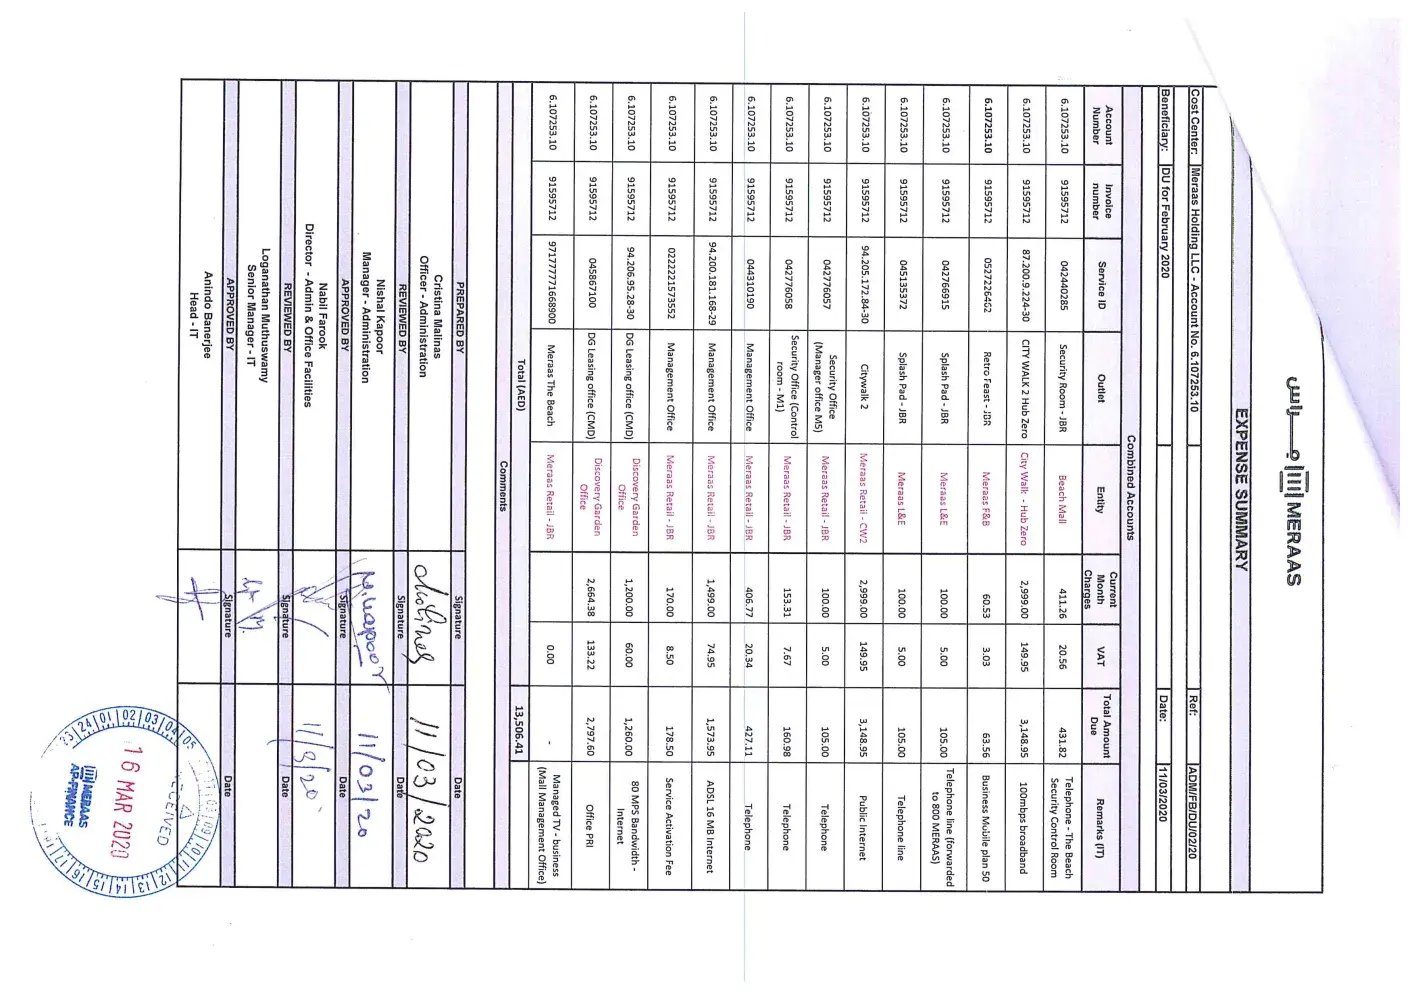 مــــراس MERAAS
EXPENSE SUMMARY
Cost Center: Meraas Holding LLC - Account No. 6.107253.10 Ref: ADM/FB/DU/02/20
Beneficiary: DU for February 2020 Date: 11/03/2020
Combined Accounts
Account Number Invoice number Service ID Outlet Entity Current Month Charges VAT Total Amount Due Remarks (IT)
6.107253.10 91595712 042440285 Security Room - JBR Beach Mall 411.26 20.56 431.82 Telephone - The Beach Security Control Room
6.107253.10 91595712 87.200.9.224-30 CITY WALK 2 Hub Zero City Walk - Hub Zero 2,999.00 149.95 3,148.95 100mbps broadband
6.107253.10 91595712 0527226462 Retro Feast - JBR Meraas F&B 60.53 3.03 63.56 Business Mobile plan 50
6.107253.10 91595712 042766915 Splash Pad - JBR Meraas L&E 100.00 5.00 105.00 Telephone line (forwarded to 800 MERAAS)
6.107253.10 91595712 045135372 Splash Pad - JBR Meraas L&E 100.00 5.00 105.00 Telephone line
6.107253.10 91595712 94.205.172.84-30 Citywalk 2 Meraas Retail - CW2 2,999.00 149.95 3,148.95 Public Internet
6.107253.10 91595712 042776057 Security Office (Manager office M5) Meraas Retail - JBR 100.00 5.00 105.00 Telephone
6.107253.10 91595712 042776058 Security Office (Control room - M1) Meraas Retail - JBR 153.31 7.67 160.98 Telephone
6.107253.10 91595712 044310190 Management Office Meraas Retail - JBR 406.77 20.34 427.11 Telephone
6.107253.10 91595712 94.200.181.168-29 Management Office Meraas Retail - JBR 1,499.00 74.95 1,573.95 ADSL 16 MB Internet
6.107253.10 91595712 0222221573552 Management Office Meraas Retail - JBR 170.00 8.50 178.50 Service Activation Fee
6.107253.10 91595712 94.206.95.28-30 DG Leasing office (CMD) Discovery Garden Office 1,200.00 60.00 1,260.00 80 MPS Bandwidth - Internet
6.107253.10 91595712 045867100 DG Leasing office (CMD) Discovery Garden Office 2,664.38 133.22 2,797.60 Office PRI
6.107253.10 91595712 971777771668900 Meraas The Beach Meraas Retail - JBR 0.00 - Managed TV - business (Mall Management Office)
Total (AED) 13,506.41
Comments
PREPARED BY Signature Date
Cristina Malinas
Officer - Administration 11/03/2020
REVIEWED BY Signature Date
Nishal Kapoor
Manager - Administration N.Kapoor 11/03/20
APPROVED BY Signature Date
Nabil Farook
Director - Admin & Office Facilities 11/3/20
REVIEWED BY Signature Date
Loganathan Muthuswamy
Senior Manager - IT
APPROVED BY Signature Date
Anindo Banerjee
Head - IT
RECEIVED
16 MAR 2020
MERAAS
AP-FINANCE